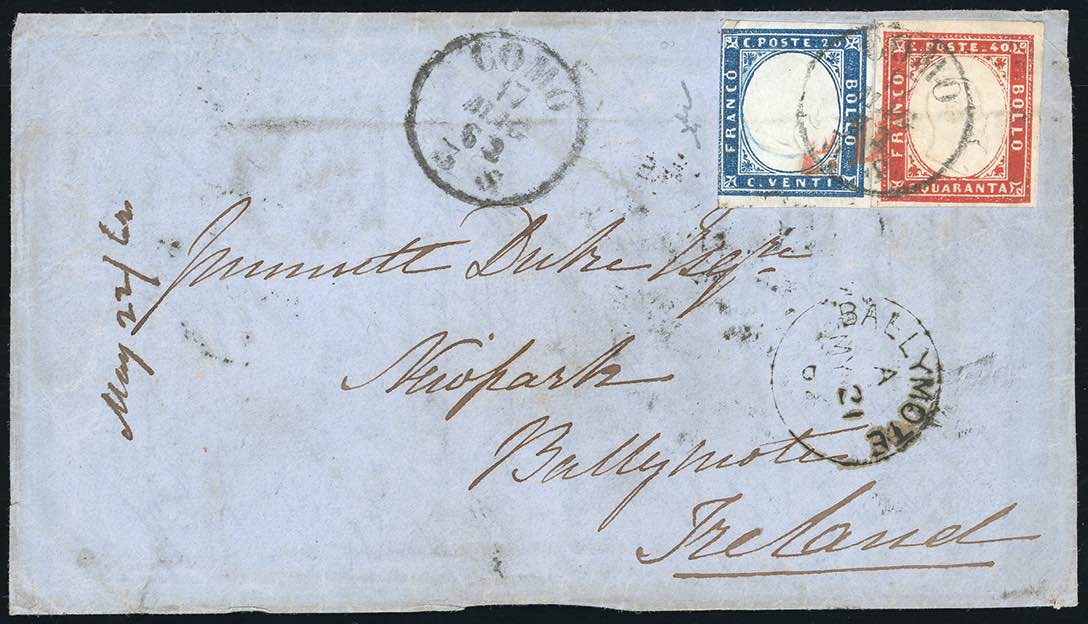 COMO
17
MAG
62
C. POSTE. 20
FRANCO
BOLLO
C. VENTI
C. POSTE. 40
FRANCO
BOLLO
QUARANTA
May 22/62
Jemmett Duke Esqre
Newpark
Ballymote
Ireland
BALLYMOTE
A
MY 21